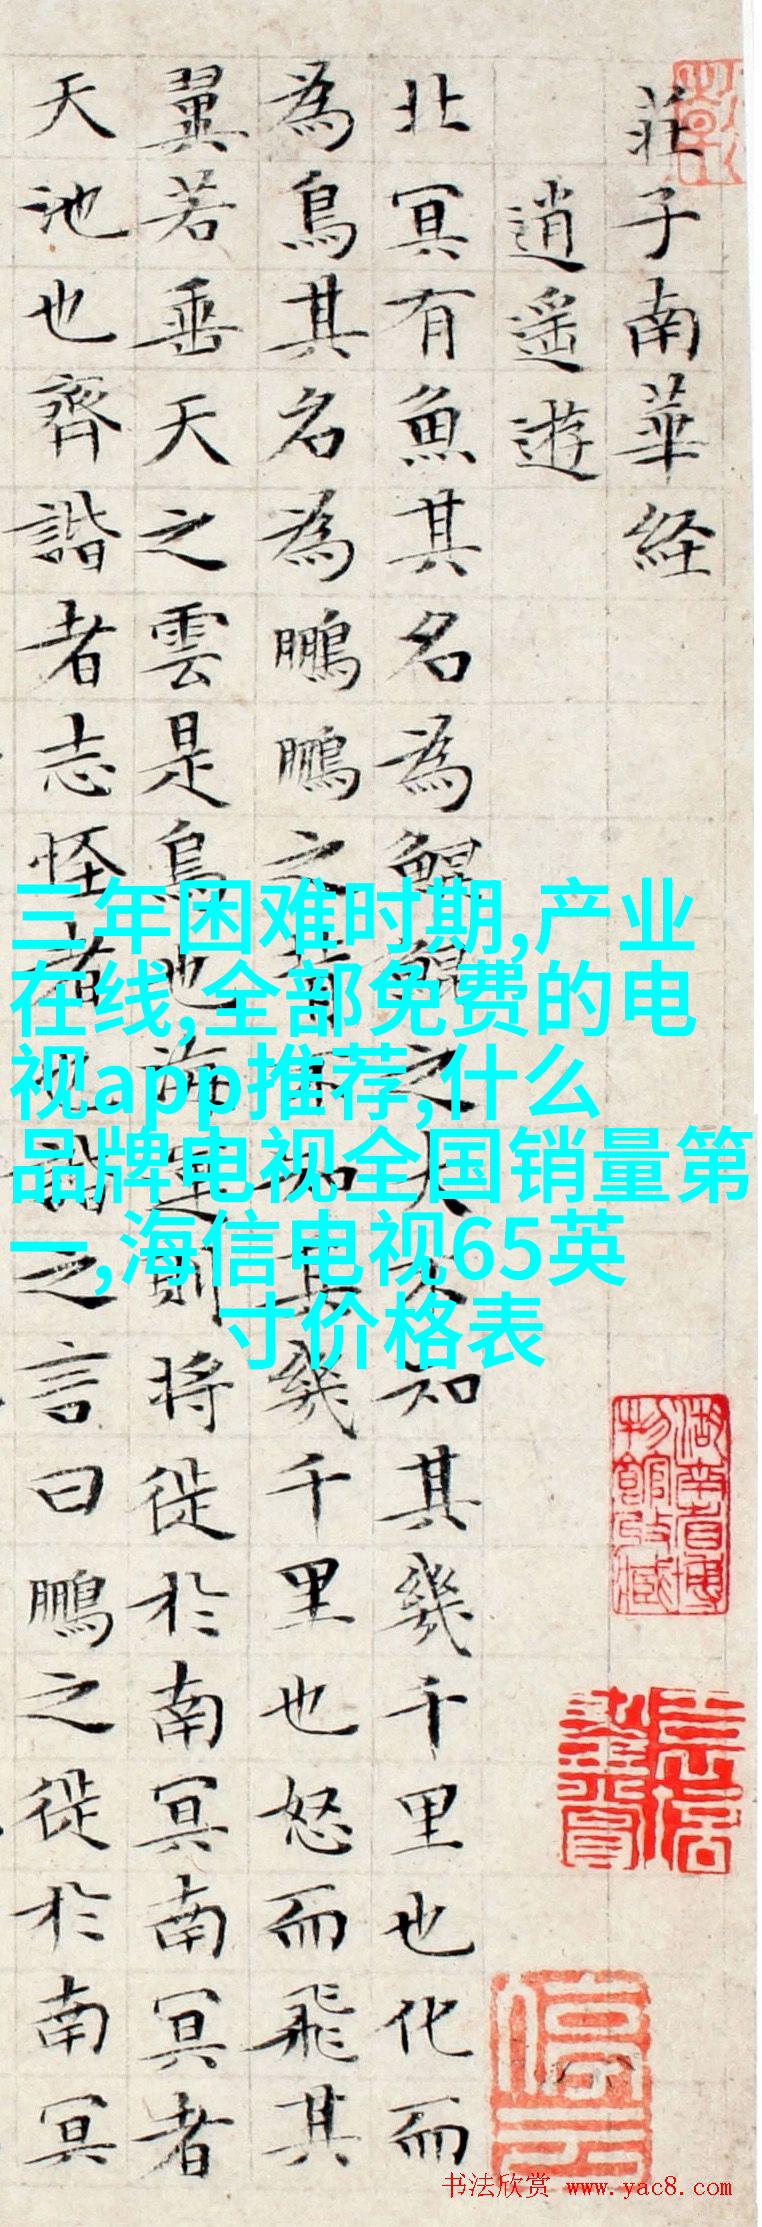 莊子南華経
逍遥遊
北冥有魚其名為鯤鯤之大不知其幾千里也化而
為鳥其名為鵬鵬之背不知其幾千里也怒而飛其
翼若垂天之雲是鳥也海運則將徙於南冥南冥者
天池也齊諧者志怪者也諧之言曰鵬之徙於南冥
三年困难时期,产业
在线,全部免费的电
视app推荐,什么
品牌电视全国销量第
一,海信电视65英
寸价格表
湖南省博
物館收藏
书法欣赏 www.yac8.com